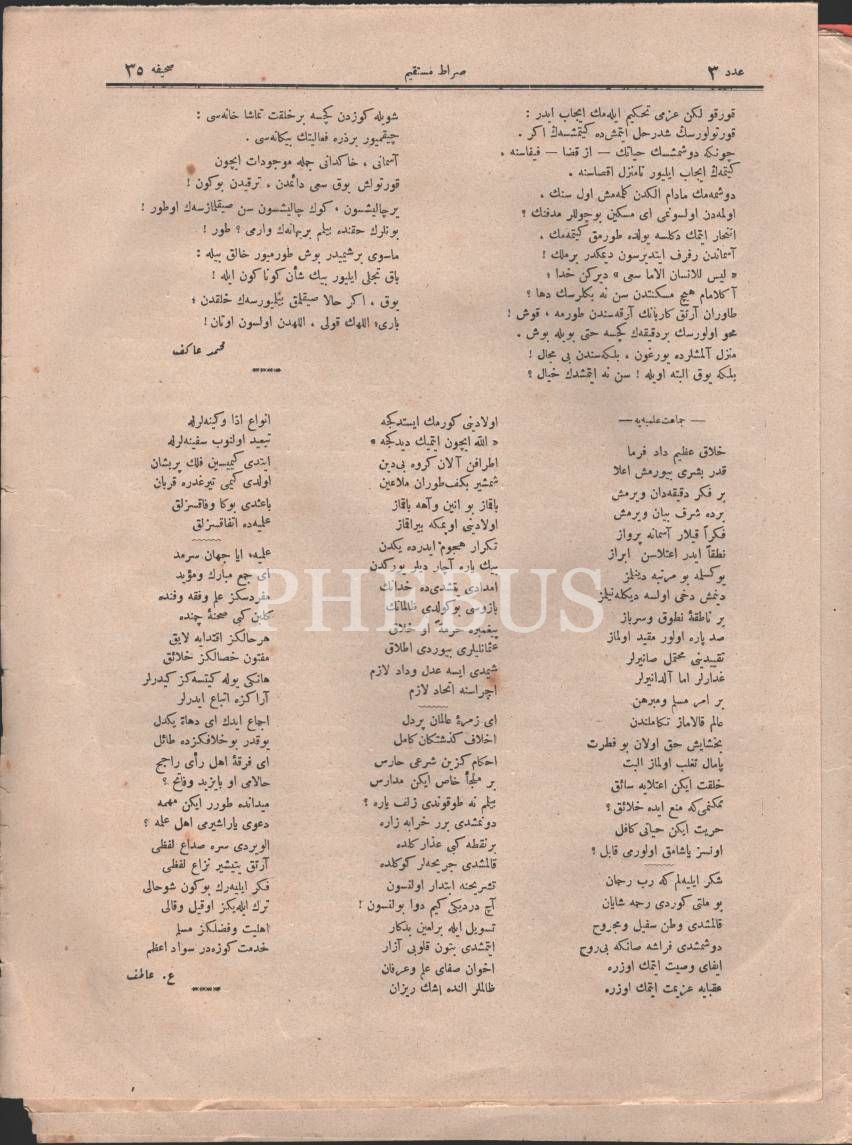 عدد ٣
صراط مستقیم
صحیفه ٣٥
قورقو لكن عزمی تحكیم ایله‌مك ایجاب ایدر :
قورتولورسڭ شدرحل ایتمش‌ده كیتمشسه‌ڭ اكر .
چونكه دوشمشسك حیاتك — از قضا — فیفاسنه .
كیتمه‌ڭ ایجاب ایلیور تامنزل اقصاسنه .
دوشمه‌مك مادام الكدن كله‌مش اول سنك .
اولمه‌دن اولسونمی ای مسكین بوچوللر مدفنك ؟
انتحار ایتمك دكلسه یولده طورمق كیتمه‌مك .
آسماندن رفرف ایندیرسون دیمكدر برملك !
« لیس للانسان الاما سعی » دیركن خدا ؛
آكلامام هیچ مسكنتدن سن نه بكلرسك دها ؟
طاوران آرتق كاربانك آرقه‌سندن طورمه ، قوش !
محو اولورسك بردقیقه‌ك كچسه حتی بویله بوش .
منزل آلمشلرده یورغون ، بلكه‌سندن بی مجال !
بلكه یوق البته اویله ! سن نه ایتمشدك خیال ؟
شویله كوزدن كچسه برخلقت تماشا خانه‌سی :
چیقمیور برذره فعالیتك بیكانه‌سی .
آسمانی ، خاكدانی جمله موجودات ایچون
قورتولش یوق سعی دائمدن ، ترقیدن بوكون !
یرچالیشسون ، كوك چالیشسون سن صیقلمازسه‌ك اوطور !
بونلرك حقنده بیلم بر بهانه‌ڭ وارمی ؟ طور !
ماسوی برشیمیدر بوش طورمیور خالق بیله :
باق تجلی ایلیور بیك شأن كوناكون ایله !
یوق ، اكر حالا صیقلمق بیلمیورسه‌ك خلقدن ؛
باری، اللهك قولی ، اللهدن اولسون اوتان !
محمد عاكف
— جماعت علمیه‌یه —
خلاق عظیم داد فرما
قدر بشری بیورمش اعلا
بر فكر دقیقه‌دان ویرمش
برده شرف بیان ویرمش
فكراً قیلار آسمانه پرواز
نطقاً ایدر اعتلاسن ابراز
یوكسلمه بو مرتبه دینلمز
دینمش دخی اولسه دیكله‌نیلمز
بر ناطقهٔ نطوق وسرباز
صد پاره اولور مقید اولماز
تقییدینی محتمل صانیرلر
غدارلر اما آلدانیرلر
بر امر مسلم ومبرهن
عالم قالاماز تكاملندن
بخشایش حق اولان بو فطرت
پامال تغلب اولماز البت
خلقت ایكن اعتلایه سائق
ممكنمی‌كه منع ایده خلائق ؟
حریت ایكن حیاتی كافل
اونسز یاشامق اولورمی قابل ؟
شكر ایلیه‌لم كه رب رحمان
بو ملتی كوردی رحمه شایان
قالمشدی وطن سفیل ومجروح
دوشمشدی فراشه صانكه بی‌روح
ایفای وصیت ایتمك اوزره
عقبایه عزیمت ایتمك اوزره
اولادینی كورمك ایستدكجه
« الله ایچون ایتمیك دیدكجه »
اطرافن آلان كروه بی‌دین
شمشیر بكف‌طوران ملاعین
باقماز بو انین وآهه باقماز
اولادینی اوپمكه بیراقماز
تكرار هجوم ایدرده یكدن
بیك یاره آچار دیلر یوركدن
امدادی یتشدی‌ده خدانك
بازوسی بوكولدی ظالمانك
پیغمبره حرمةً او خلاق
عثمانلیلری بیوردی اطلاق
شیمدی ایسه عدل وداد لازم
اجراسنه اتحاد لازم
ای زمرهٔ عالمان پردل
اخلاف كذشتكان كامل
احكام كزین شرعی حارس
بر ملجأ خاص ایكن مدارس
بیلم نه طوقوندی زلف یاره ؟
دونمشدی برر خرابه زاره
برنقطه كبی عذار كلده
قالمشدی جریحه‌لر كوكلده
تشریحنه ابتدار اولنسون
آچ دردیكی كیم دوا بولنسون !
تسویل ایله برلعین بدكار
ایتمشدی بتون قلوبی آزار
اخوان صفای علم وعرفان
ظالملر النده اشك ریزان
انواع اذا وكینه‌لرله
تبعید اولنوب سفینه‌لرله
ایتدی كیمیسین فلك پریشان
اولدی كیمی تیرغدره قربان
باعثدی بوكا وفاقسزلق
علمیه‌ده اتفاقسزلق
علمیه، ایا جهان سرمد
ای جمع مبارك ومؤید
مفردسكز علم وفقه وفنده
كلبن كبی صحنهٔ چنده
هرحالكز اقتدایه لایق
مفتون خصالكز خلائق
هانكی یوله كیتسه‌كز كیدرلر
آراكزه اتباع ایدرلر
اجماع ایدك ای دهاة یكدل
یوقدر بو خلافكزده طائل
ای فرقهٔ اهل رأی راجح
حالامی او بایزید وفاتح ؟
میدانده طورر ایكن مهمه
دعوی یاراشیرمی اهل علمه ؟
الویردی سره صداع لفظی
آرتق یتیشیر نزاع لفظی
فكر ایلیه‌رك بوكون شوحالی
ترك ایله‌یكز اوقیل وقالی
اهلیت وفضلكز مسلم
خدمت كوزه‌در سواد اعظم
ع. عاطف
PHEBUS